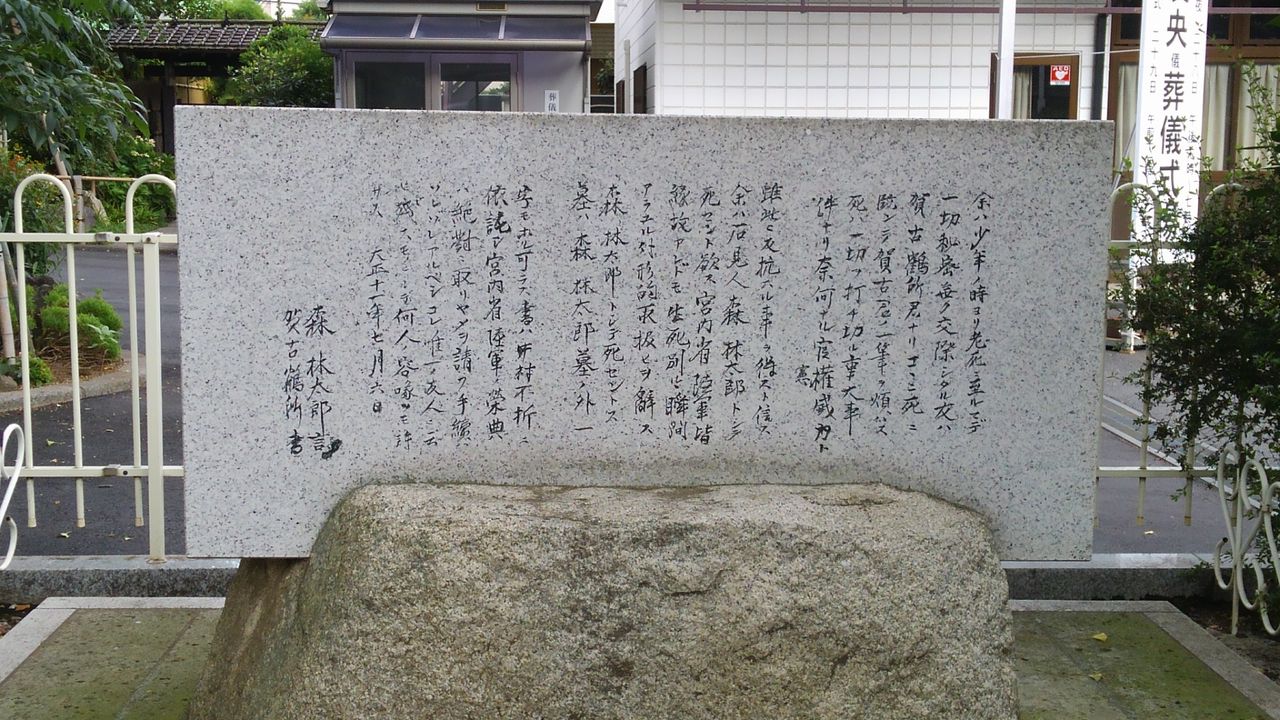 余ハ少年ノ時ヨリ老死ニ至ルマデ
一切秘密無ク交際シタル友ハ
賀古鶴所君ナリコヽニ死ニ
臨ンテ賀古君ノ一筆ヲ煩ハス
死ハ一切ヲ打チ切ル重大事
件ナリ奈何ナル官權威力ト
憲
雖此ニ反抗スル事ヲ得スト信ス
余ハ石見人森林太郎トシテ
死セント欲ス宮内省陸軍皆
縁故アレドモ生死別ルヽ瞬間
アラユル外形的取扱ヒヲ辭ス
森林太郎トシテ死セントス
墓ハ森林太郎墓ノ外一
字モホル可ラス書ハ中村不折ニ
依託シ宮内省陸軍ノ榮典
ハ絶對ニ取リヤメヲ請フ手續ハ
ソレゾレアルベシコレ唯一ノ友人ニ云
ヒ殘スモノニシテ何人ノ容喙ヲモ許
サス 大正十一年七月六日
森林太郎言
賀古鶴所書
央儀葬儀式
AED
葬儀